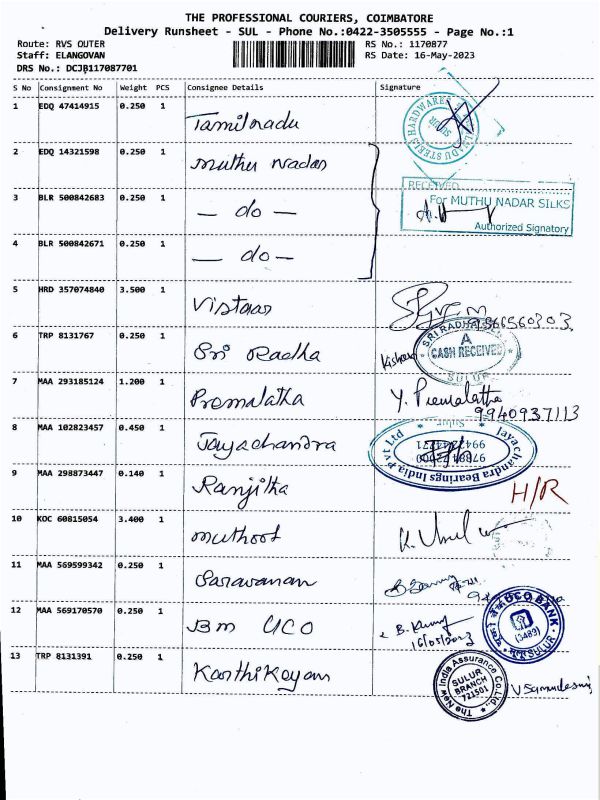 THE PROFESSIONAL COURIERS, COIMBATORE
Delivery Runsheet - SUL - Phone No.:0422-3505555 - Page No.:1
Route: RVS OUTER
RS No.: 1170877
Staff: ELANGOVAN
RS Date: 16-May-2023
DRS No.: DCJB117087701
S No Consignment No Weight PCS Consignee Details Signature
1 EDQ 47414915 0.250 1 Tamilnadu
2 EDQ 14321598 0.250 1 Muthu Nadar
RECEIVED
For MUTHU NADAR SILKS
Authorized Signatory
3 BLR 500842683 0.250 1 — do —
4 BLR 500842671 0.250 1 — do —
5 HRD 357074840 3.500 1 Vistaas
6 TRP 8131767 0.250 1 Sri Radha
SRI RADHA
CASH RECEIVED
SULUR
7 MAA 293185124 1.200 1 Premalatha Y. Premalatha
9940937113
8 MAA 102823457 0.450 1 Jayachandra
Jayachandra Bearings India Pvt Ltd
Sulur
9 MAA 298873447 0.140 1 Ranjitha H/R
10 KOC 60815054 3.400 1 Muthoot
11 MAA 569599342 0.250 1 Saravanan
12 MAA 569170570 0.250 1 BM UCO
16/05/2023
UCO BANK
(3489)
SULUR
13 TRP 8131391 0.250 1 Karthikeyan
The New India Assurance Co.Ltd.,
SULUR
BRANCH
721501